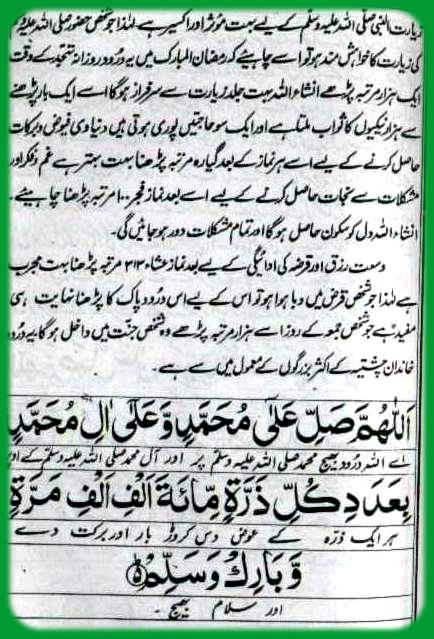 زیارت النبی صلی اللہ علیہ وسلم کے لیے بہت مؤثر اور اکسیر ہے لہٰذا جو شخص حضور صلی اللہ علیہ وسلم
کی زیارت کا خواہش مند ہو تو اسے چاہیئے کہ رمضان المبارک میں یہ درود روزانہ تہجد کے وقت
ایک ہزار مرتبہ پڑھے انشاء اللہ بہت جلد زیارت سے سرفراز ہوگا اسے ایک بار پڑھنے
سے ہزار نیکیوں کا ثواب ملتا ہے اور ایک سو حاجتیں پوری ہوتی ہیں دنیاوی فیوض و برکات
حاصل کرنے کے لیے اسے ہر نماز کے بعد گیارہ مرتبہ پڑھنا بہت بہتر ہے غم و فکر اور
مشکلات سے نجات حاصل کرنے کے لیے اسے بعد نماز فجر ۱۰۰ مرتبہ پڑھنا چاہیئے۔
انشاء اللہ دل کو سکون حاصل ہوگا اور تمام مشکلات دور ہو جائیں گی۔
وسعت رزق اور قرضہ کی ادائیگی کے لیے بعد نماز عشاء ۳۱۳ مرتبہ پڑھنا بہت مجرب
ہے لہٰذا جو شخص قرض میں دبا ہوا ہو تو اس کے لیے اس درود پاک کا پڑھنا نہایت ہی
مفید ہے جو شخص جمعہ کے روز اسے ہزار مرتبہ پڑھے وہ شخص جنت میں داخل ہوگا۔ یہ درود
خاندان چشتیہ کے اکثر بزرگوں کے معمول میں سے ہے۔
اَللّٰهُمَّ صَلِّ عَلٰی مُحَمَّدٍ وَّعَلٰی اٰلِ مُحَمَّدٍ
اے اللہ درود بھیج محمد صلی اللہ علیہ وسلم پر اور آل محمد صلی اللہ علیہ وسلم کے اوپر
بِعَدَدِ كُلِّ ذَرَّةٍ مِّائَةَ اَلْفِ اَلْفِ مَرَّةٍ
ہر ایک ذرہ کے عوض دس کروڑ بار اور برکت دے
وَّبَارِكْ وَسَلِّمْ
اور سلام بھیج۔